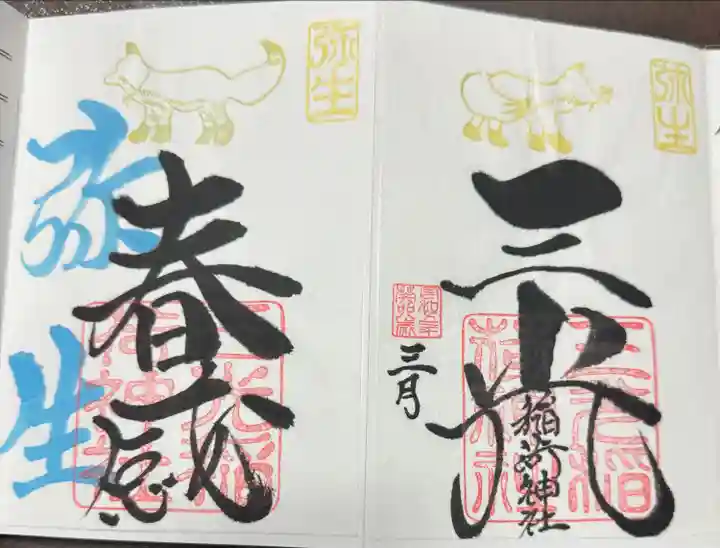 弥生
三光
稲荷神社
三月
弥生
春感
弥生